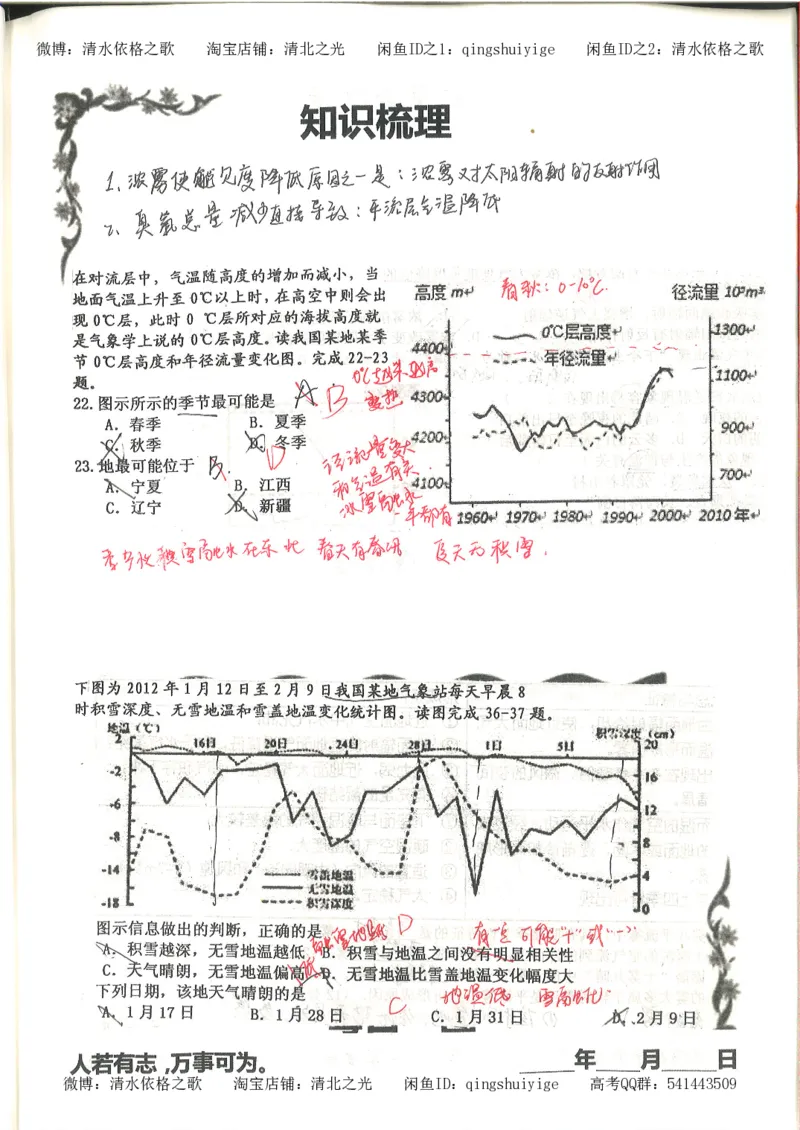 微博：清水依格之歌 淘宝店铺：清北之光 闲鱼ID之1：qingshuiyige 闲鱼ID之2：清水依格之歌
知识梳理
1、浓雾使能见度降低原因之一是：浓雾对太阳辐射的反射作用
2、臭氧总量减少直接导致：平流层气温降低
在对流层中，气温随高度的增加而减小，当
地面气温上升至 0℃以上时，在高空中则会出
现 0℃层，此时 0 ℃层所对应的海拔高度就
是气象学上说的 0℃层高度。读我国某地某季
节 0℃层高度和年径流量变化图。完成 22-23
题。
22. 图示所示的季节最可能是 A B
A. 春季 B. 夏季
C. 秋季 D. 冬季
23. 地最可能位于 B. D
A. 宁夏 B. 江西
C. 辽宁 D. 新疆
0℃越来越高
变热
径流量变大
和气温有关.
冰雪融水
年都有
高度 m
春秋：0-10℃.
径流量 10⁸m³
0℃层高度
年径流量
4400
4300
4200
4100
1300
1100
900
700
1960 1970 1980 1990 2000 2010 年
季节性积雪融水在东北 春天有春汛 夏天无积雪.
下图为 2012 年 1 月 12 日至 2 月 9 日我国某地气象站每天早晨 8
时积雪深度、无雪地温和雪盖地温变化统计图。读图完成 36-37 题。
地温（℃） 积雪深度（cm）
16日 20日 24日 28日 1日 5日
2
-2
-6
-8
-14
-18
20
16
12
8
4
0
雪盖地温
无雪地温
积雪深度
图示信息做出的判断，正确的是 D
A. 积雪越深，无雪地温越低 B. 积雪与地温之间没有明显相关性
C. 天气晴朗，无雪地温偏高 D. 无雪地温比雪盖地温变化幅度大
下列日期，该地天气晴朗的是 C
A. 1 月 17 日 B. 1 月 28 日 C. 1 月 31 日 D. 2 月 9 日
人若有志，万事可为。 年 月 日
微博：清水依格之歌 淘宝店铺：清北之光 闲鱼ID：qingshuiyige 高考QQ群：541443509